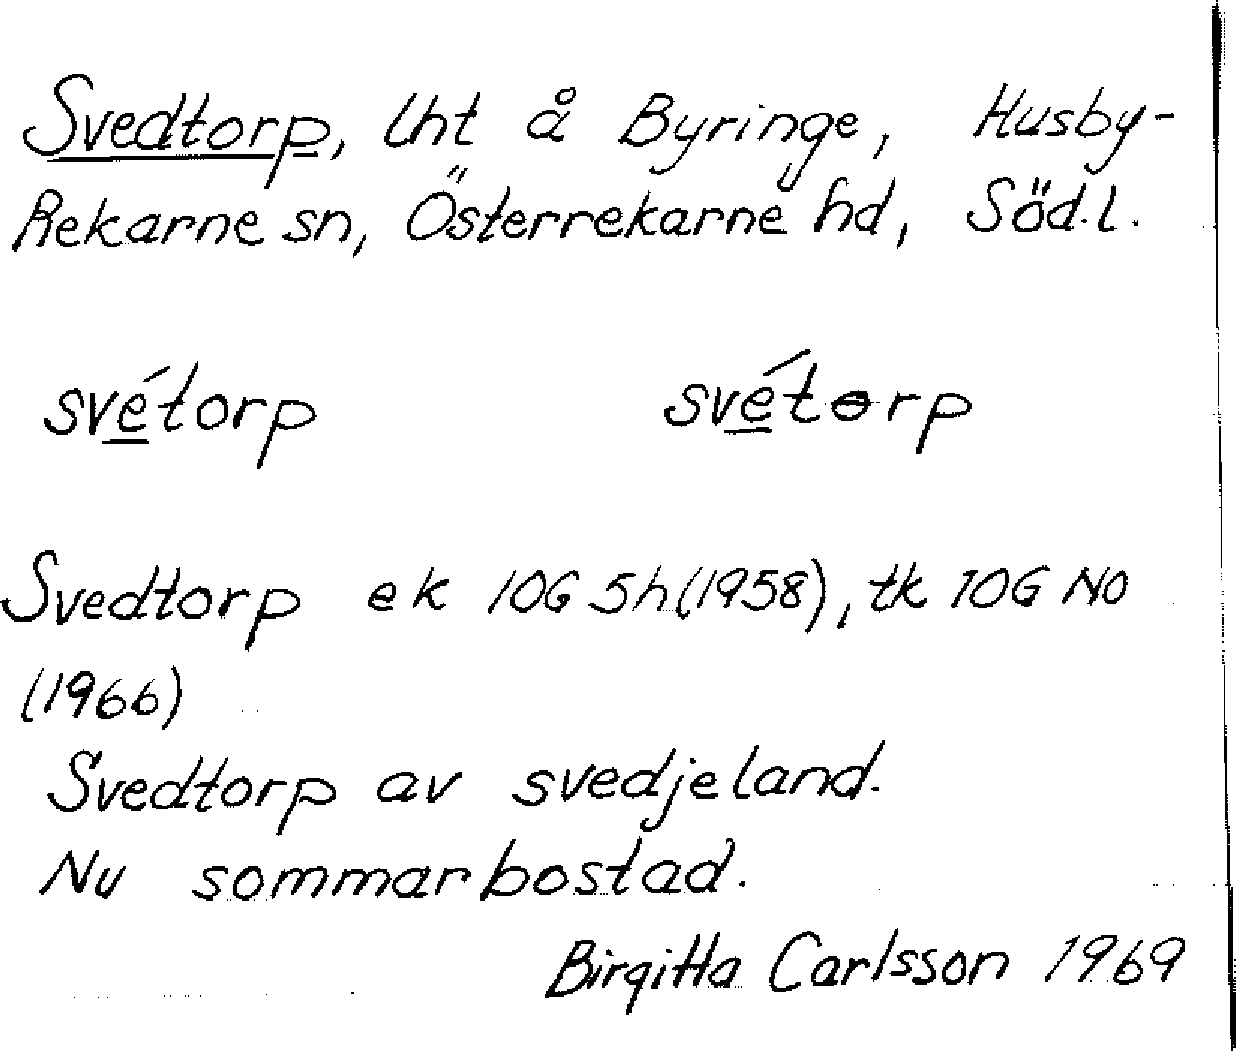 Svedtorp, lht å Byringe, Husby-
Rekarne sn, Österrekarne hd, Söd.l.
své̲torp své̲tɵrp
Svedtorp ek 10G 5h(1958), tk 10G NO
(1966)
Svedtorp av svedjeland.
Nu sommarbostad.
Birgitta Carlsson 1969